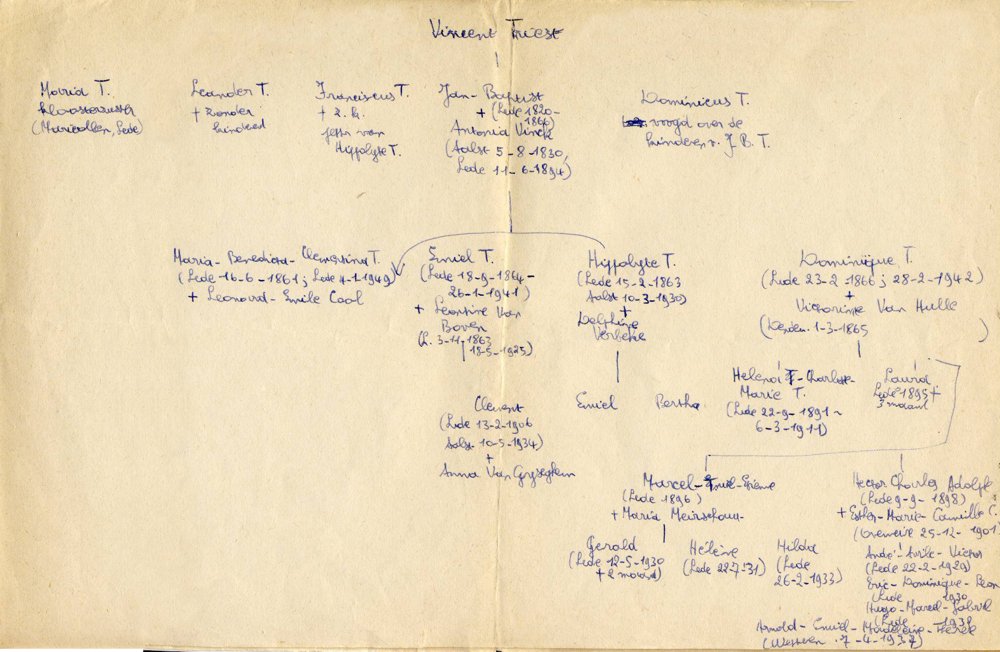 Vincent Triest
Maria T.
kloosterzuster
(Maricollen, Lede)
Leander T.
+ zonder
kinderen
Franciscus T.
+ Z. K.
peter van
Hippolyte T.
Jan-Baptist
+ (Lede 1820-
1866)
Antonia Vinck
(Aalst 5-8-1830,
Lede 11-6-1894)
Dominicus T.
voogd over de
kinderen v. J. B. T.
Maria-Benedicta-Clementina T.
(Lede 16-6-1861; Lede 4-1-1949)
+ Leonard-Emile Cool
Emiel T.
(Lede 18-9-1864-
26-1-1941)
+ Leontine Van
Boven
(L. 3-11-1863
18-5-1925)
Hippolyte T.
(Lede 15-2-1863
Aalst 10-3-1930)
+
Delphine
Verbeke
Dominique T.
(Lede 23-2-1866; 28-2-1942)
+
Victorine Van Hulle
1-3-1865 )
Clement
(Lede 13-2-1906
Aalst 10-5-1934)
+
Anna Van Gyseghem
Emiel Bertha
Helena -Charlotte-
Marie T.
(Lede 22-9-1891-
6-3-1911)
Laura
Lede 1895 +
3 maand
Marcel-Emiel-Etienne
(Lede 1896)
+ Maria Meirschaut
Hector Charles Adolf
(Lede 9-9-1898)
+ Esther-Marie-Camille C.
25-12-1901
Gerold
(Lede 12-5-1930
+ 2 maand)
Hélène
(Lede 22-7-31)
Hilda
(Lede
26-2-1933)
André-Aurèle-Victor
(Lede 22-2-1929)
Eric-Dominique-
(Lede 1930
Hugo-Marcel-Gabriel
(Lede
Arnold-Emiel-Madeleine-
7-4-1937)